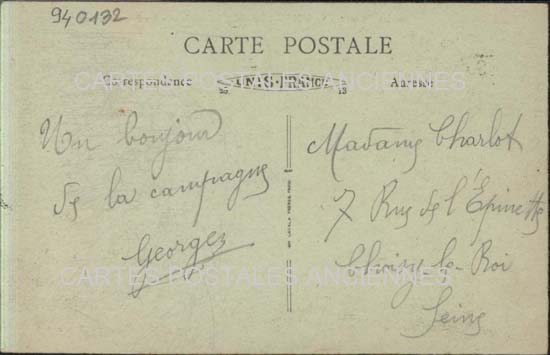 940132
CARTE POSTALE
Correspondance
UNIS-FRANCE
Adresse
CARTES POSTALES ANCIENNES
Un bonjour
de la campagne
Georges
Madame Charlot
7 Rue de l'Épinette
Choisy-le-Roi
Seine
CARTES POSTALES ANCIENNES